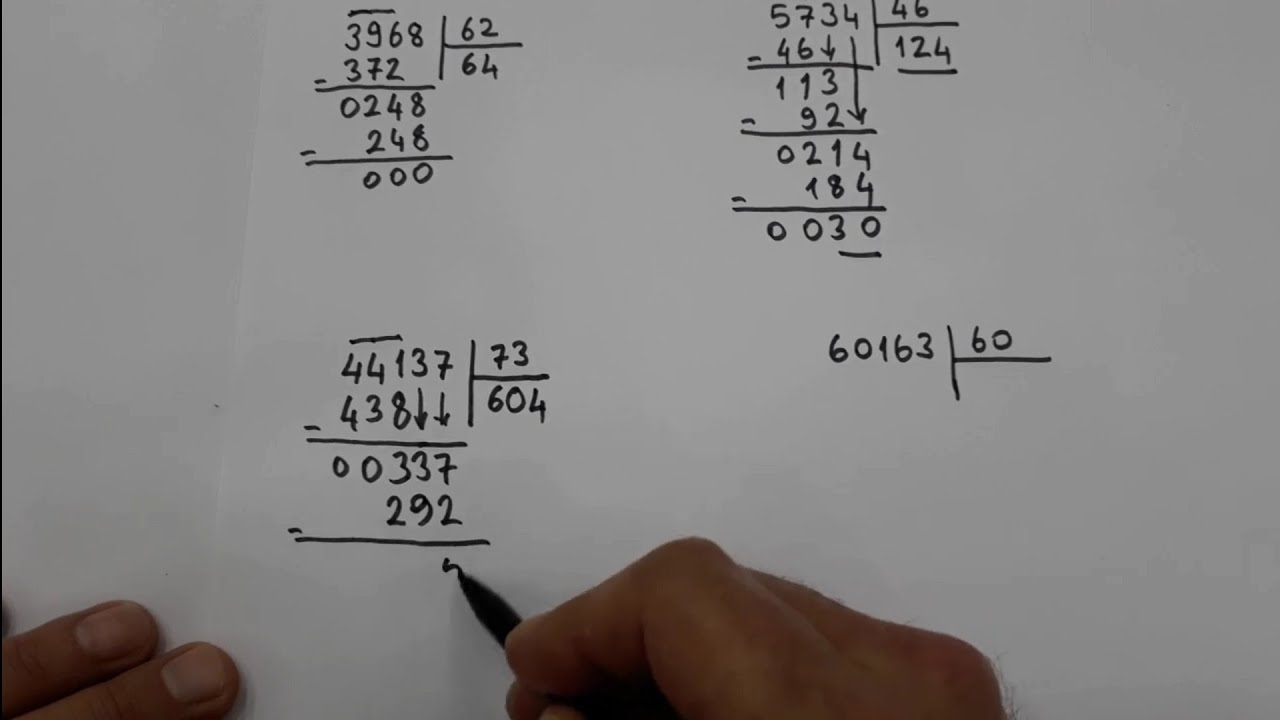 3968 62
- 372 64
0248
- 248
000
5734 46
- 46 124
113
- 92
0214
- 184
0030
44137 73
- 438 604
00337
- 292
60163 60